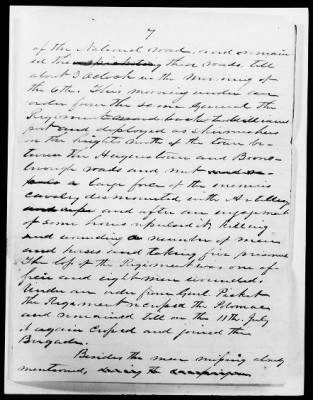 7
of the National road, and remain
ed there picketing these roads, till
about 3 Oclock in the Morning of
the 6th. This morning under an
order from the same General the
Regiment moved back to Williams
port and deployed as skirmishers
on the heights North of the town be-
tween the Hagerstown and Boons-
borough roads and met
a large force of the enemies
cavalry dismounted with Artillery
and after an engagement
of some hours repulsed it, killing
and wounding a number of men
and horses and taking five prisoners
The loss of the Regiment was one of-
ficer and eight men wounded.
Under an order from Genl Picket
the Regiment recrossed the Potomac
and remained till on the 11th July
it again crossed and joined the
Brigade.
Besides the men missing already
mentioned, during the campaign